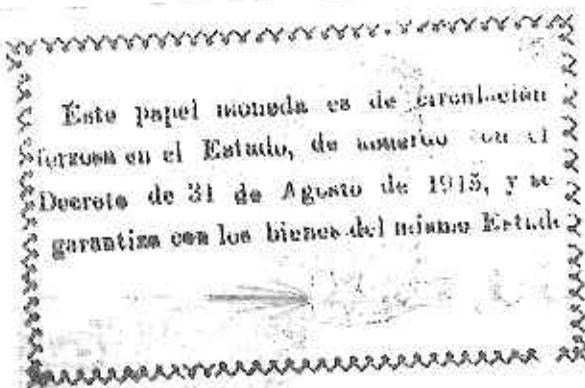 Este papel moneda es de circulación
forzosa en el Estado, de acuerdo con el
Decreto de 31 de Agosto de 1915, y se
garantiza con los bienes del mismo Estado